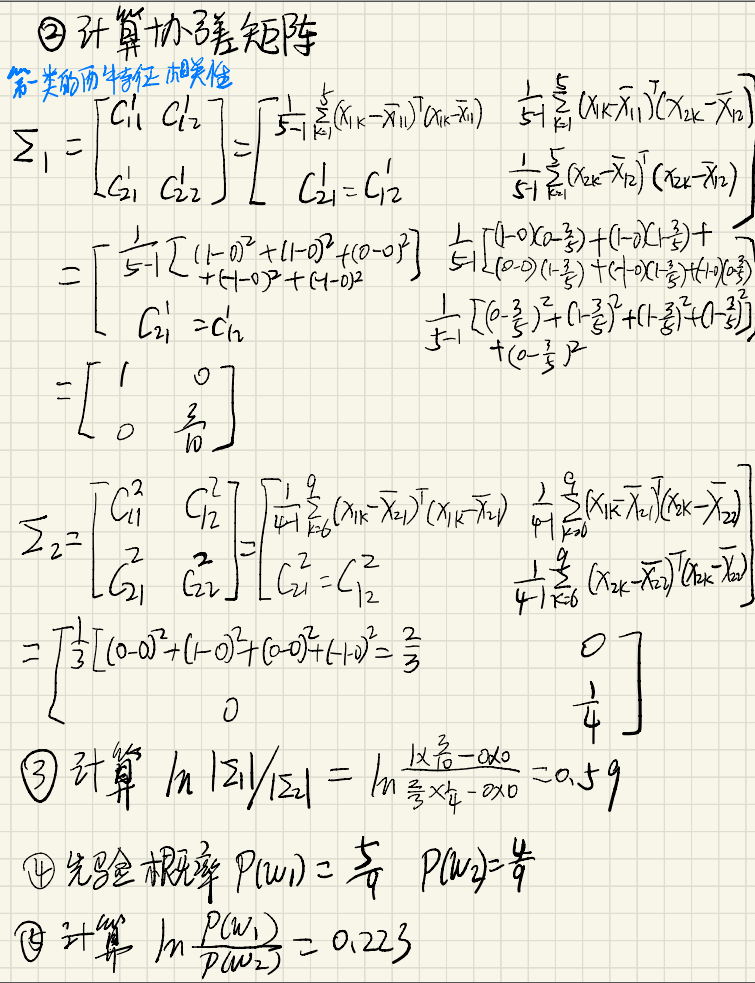 ② 计算协方差矩阵
第一类的两个特征相关性
Σ₁ = [C¹₁₁ C¹₁₂; C¹₂₁ C¹₂₂] = [1/(5-1) Σ_{k=1}^{5} (x₁ₖ-x̄₁₁)ᵀ(x₁ₖ-x̄₁₁)   1/(5-1) Σ_{k=1}^{5} (x₁ₖ-x̄₁₁)ᵀ(x₂ₖ-x̄₁₂); C¹₂₁ = C¹₁₂   1/(5-1) Σ_{k=1}^{5} (x₂ₖ-x̄₁₂)ᵀ(x₂ₖ-x̄₁₂)]
= [1/(5-1) [(1-0)²+(1-0)²+(0-0)²+(-1-0)²+(-1-0)²]   1/(5-1) [(1-0)(0-3/5)+(1-0)(1-3/5)+(0-0)(1-3/5)+(-1-0)(1-3/5)+(-1-0)(0-3/5)]; C¹₂₁ = C¹₁₂   1/(5-1) [(0-3/5)²+(1-3/5)²+(1-3/5)²+(1-3/5)²+(0-3/5)²]]
= [1 0; 0 3/10]
Σ₂ = [C²₁₁ C²₁₂; C²₂₁ C²₂₂] = [1/(4-1) Σ_{k=6}^{9} (x₁ₖ-x̄₂₁)ᵀ(x₁ₖ-x̄₂₁)   1/(4-1) Σ_{k=6}^{9} (x₁ₖ-x̄₂₁)ᵀ(x₂ₖ-x̄₂₂); C²₂₁ = C²₁₂   1/(4-1) Σ_{k=6}^{9} (x₂ₖ-x̄₂₂)ᵀ(x₂ₖ-x̄₂₂)]
= [1/3 [(0-0)²+(1-0)²+(0-0)²+(-1-0)² = 2/3   0; 0   1/4]
③ 计算 ln |Σ₁|/|Σ₂| = ln (1×3/10-0×0)/(2/3×1/4-0×0) = 0.59
④ 先验概率 P(w₁) = 5/9 P(w₂) = 4/9
⑤ 计算 ln P(w₁)/P(w₂) = 0.223